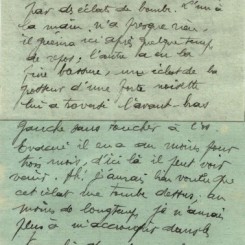 par des éclats de bombe. L'un à
la main, n'a presque rien,
il guérira ici après quelque temps
de repos; l'autre a eu le
une éclat de la
grosseur d'une forte noisette
lui a traversé l'avant-bras
gauche sans toucher à l'os
Evacué il en a au moins pour
trois mois, d'ici là il peut voir
venir. Ah! j'aurais bien voulu que
cet éclat me tombe dessus, au
moins de longtemps, je n'aurais
plus à m'accroupir dans la